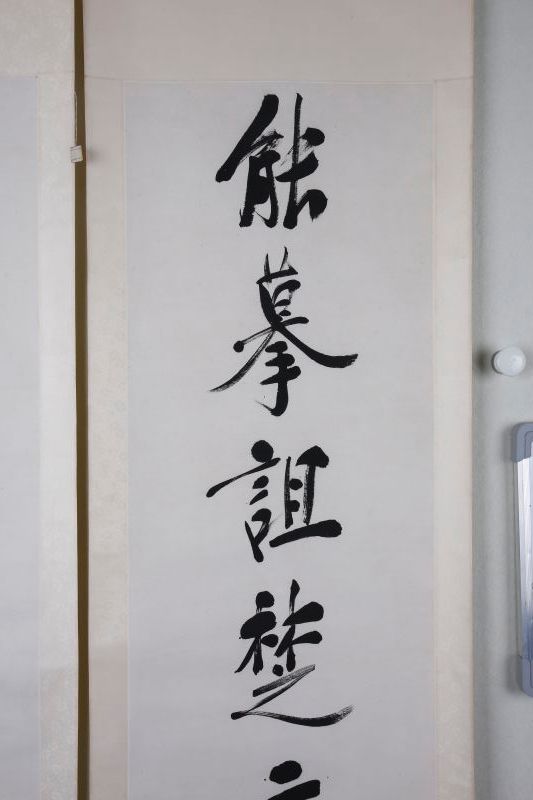 能摹詛楚